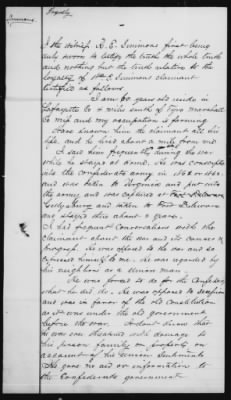 Loyalty
Simmons
I the witness R. E. Simmons first being
duly sworn to testify the truth the whole truth
and nothing but the truth relative to the
loyalty of Wm E Simmons claimant
testified as follows
I am 60 years old reside in
Lafayette Co 4 miles south of Tyro Marshall
Co miss and my occupation is farming
Have known him the claimant all his
life, and he lived about a mile from me
I saw him frequently during the war
while he stayed at home. He was conscripted
into the confederate army in 1862 or 1863.
and was taken to Virginia and put into
the army and was captured at
Gettysburg and taken to Fort Delaware
and stayed there about 2 years.
I had frequent conversations with the
claimant about the war and its causes &
progress. He was opposed to the war and so
expressed himself to me. He was regarded by
his neighbors as a Union man.
He was forced to do for the Confederacy
what he did do. He was opposed to secession
and was in favor of the old Constitution
as it was under the old government
before the war. I dont know that
he was ever threatened with damage to
his person family or property on
account of his Union Sentiments
He gave no aid or information to
the Confederate government